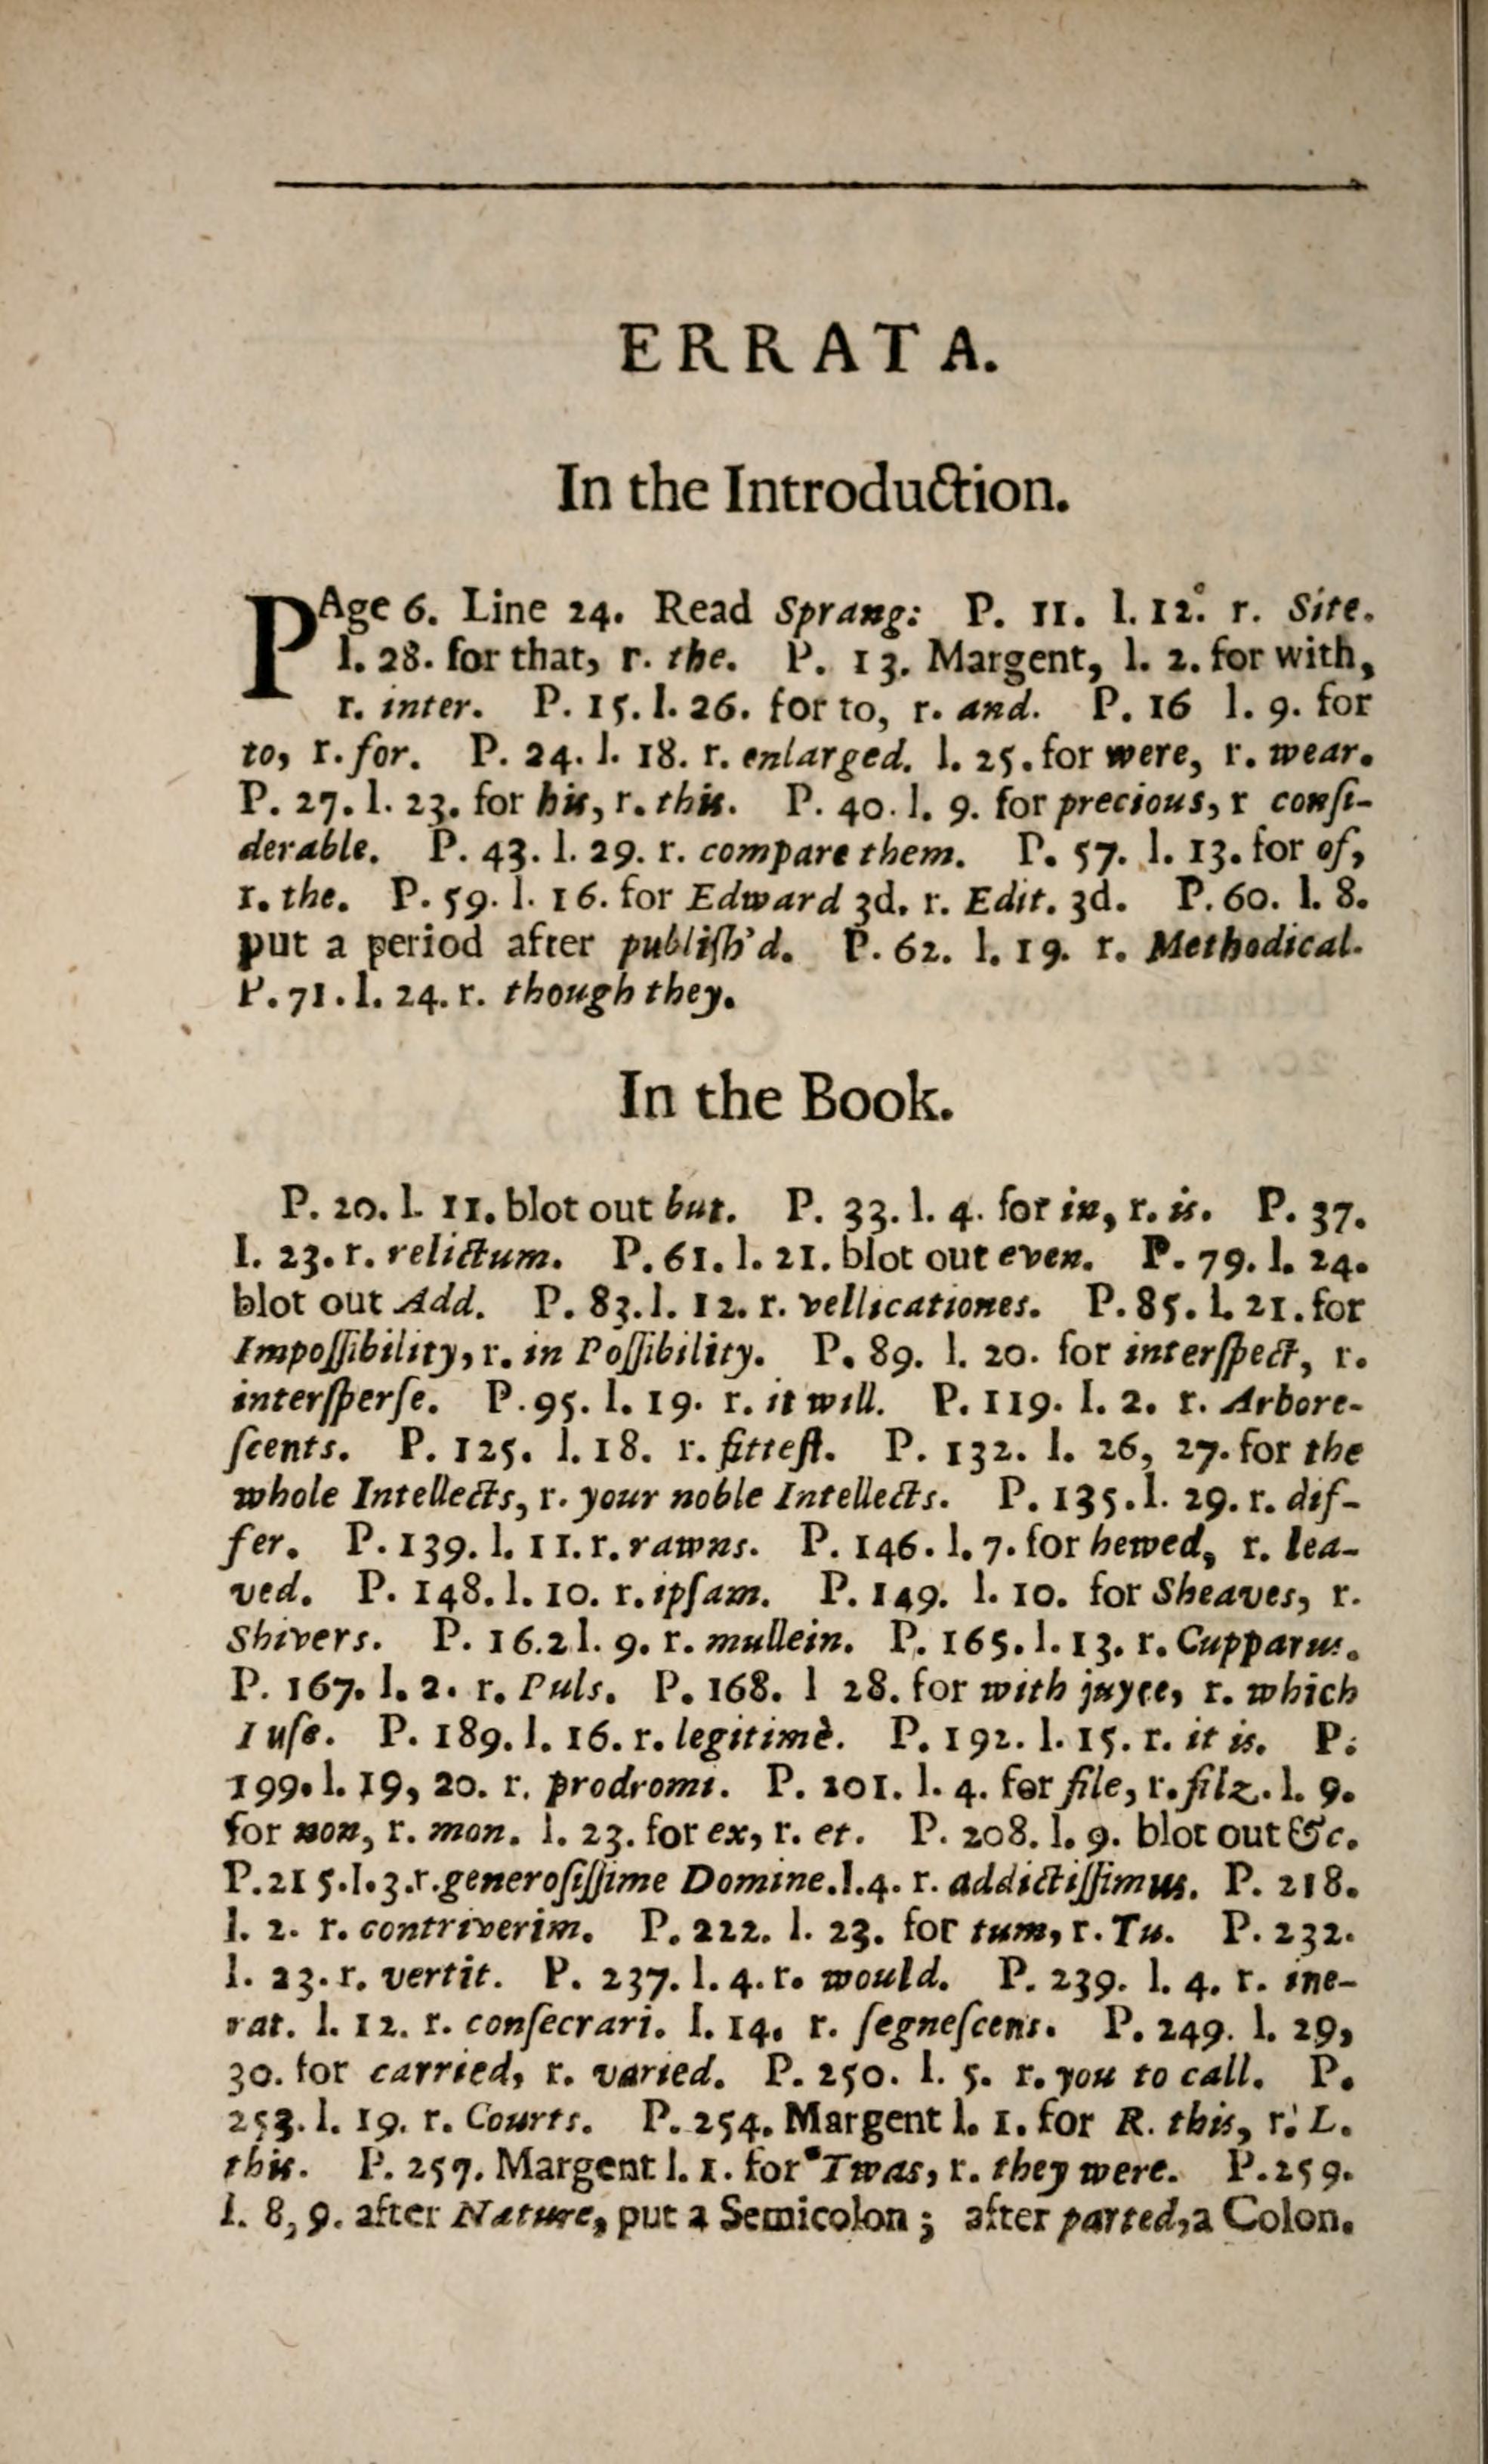 ERRATA.
In the Introduction.
PAge 6. Line 24. Read Sprang: P. 11. l. 12. r. Site.
l. 28. for that, r. the. P. 13. Margent, l. 2. for with,
r. inter. P. 15. l. 26. for to, r. and. P. 16 l. 9. for
to, r. for. P. 24. l. 18. r. enlarged. l. 25. for were, r. wear.
P. 27. l. 23. for his, r. this. P. 40. l. 9. for precious, r conſi-
derable. P. 43. l. 29. r. compare them. P. 57. l. 13. for of,
r. the. P. 59. l. 16. for Edward 3d. r. Edit. 3d. P. 60. l. 8.
put a period after publiſh'd. P. 62. l. 19. r. Methodical.
P. 71. l. 24. r. though they.
In the Book.
P. 20. l. 11. blot out but. P. 33. l. 4. for in, r. is. P. 37.
l. 23. r. relictum. P. 61. l. 21. blot out even. P. 79. l. 24.
blot out Add. P. 83. l. 12. r. vellicationes. P. 85. l. 21. for
Impoſſibility, r. in Poſſibility. P. 89. l. 20. for interſpect, r.
interſperſe. P. 95. l. 19. r. it will. P. 119. l. 2. r. Arbore-
ſcents. P. 125. l. 18. r. fitteſt. P. 132. l. 26, 27. for the
whole Intellects, r. your noble Intellects. P. 135. l. 29. r. dif-
fer. P. 139. l. 11. r. rawns. P. 146. l. 7. for hewed, r. lea-
ved. P. 148. l. 10. r. ipſam. P. 149. l. 10. for Sheaves, r.
Shivers. P. 16.2 l. 9. r. mullein. P. 165. l. 13. r. Cupparus.
P. 167. l. 2. r. Puls. P. 168. l 28. for with juyce, r. which
I uſe. P. 189. l. 16. r. legitimè. P. 192. l. 15. r. it is. P.
199. l. 19, 20. r. prodromi. P. 201. l. 4. for file, r. filz. l. 9.
for non, r. mon. l. 23. for ex, r. et. P. 208. l. 9. blot out &c.
P. 215. l. 3. r. generoſiſſime Domine. l. 4. r. addictiſſimus. P. 218.
l. 2. r. contriverim. P. 222. l. 23. for tum, r. Tu. P. 232.
l. 23. r. vertit. P. 237. l. 4. r. would. P. 239. l. 4. r. ine-
rat. l. 12. r. conſecrari. l. 14. r. ſegneſcens. P. 249. l. 29,
30. for carried, r. varied. P. 250. l. 5. r. you to call. P.
253. l. 19. r. Courts. P. 254. Margent l. 1. for R. this, r. L.
this. P. 257. Margent l. 1. for 'Twas, r. they were. P. 259.
l. 8, 9. after Nature, put a Semicolon; after parted, a Colon.